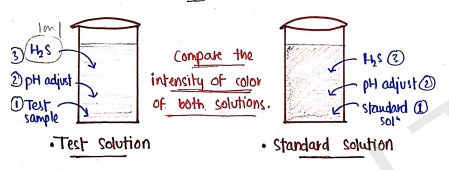 1om l
③ H₂S
② pH adjust
① Test
sample
• Test solution
Compare the
intensity of color
of both solutions.
H₂S ③
pH adjust ②
standard ①
solⁿ
• Standard solution